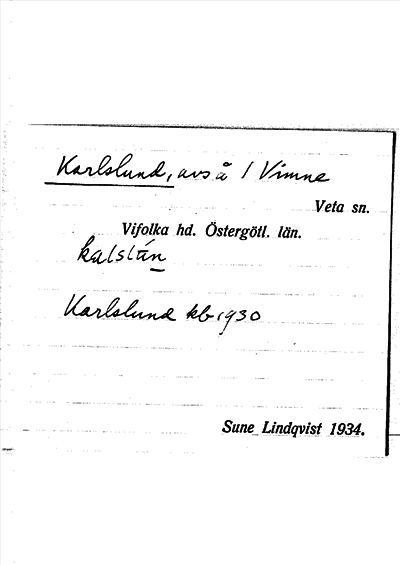 Karlslund, avs å 1 Vimne
Veta sn.
Vifolka hd. Östergötl. län.
kalslán
Karlslund kb 1930
Sune Lindqvist 1934.